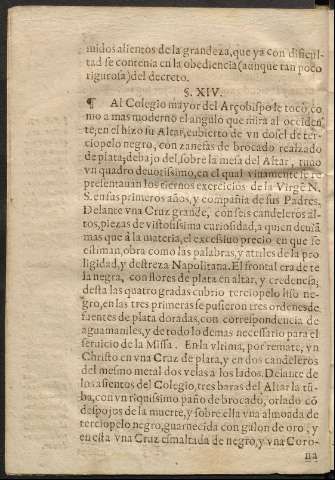 nuidos asientos de la grandeza, que ya con dificul-
tad se contenia en la obediencia (aunque tan poco
rigurosa) del decreto.
§. XIV.
¶ Al Colegio mayor del Arçobispo le tocò, co
mo a mas moderno el angulo que mira al occiden
te, en el hizo su Altar, cubierto de vn dosel de ter-
ciopelo negro, con zanefas de brocado realzado
de plata; debajo del, sobre la mesa del Altar, tuuo
vn quadro deuotissimo, en el qual viuamente se re
presentauan los tiernos exercicios de la Virgẽ N.
S. en sus primeros años, y compañia de sus Padres.
Delante vna Cruz grande, con seis candeleros al-
tos, piezas de vistosissima curiosidad, a quien denâ
mas que à la materia, el excessiuo precio en que se
estiman, obra como las palabras, y atriles de la pro
ligidad, y destreza Napolitana. El frontal era de te
la negra, con flores de plata en altar, y credencia;
desta las quatro gradas cubrio terciopelo liso ne-
gro, en las tres primeras se pusieron tres ordenes de
fuentes de plata doradas, con correspondencia de
aguamaniles, y de todo lo demas necessario para el
seruicio de la Missa. En la vltima, por remate, vn
Christo en vna Cruz de plata, y en dos candeleros
del mesmo metal dos velas a los lados. Delante de
los asientos del Colegio, tres baras del Altar la tũ-
ba, con vn riquissimo paño de brocado, orlado cõ
despojos de la muerte, y sobre ella vna almoada de
terciopelo negro, guarnecida con galon de oro; y
en esta vna Cruz esmaltada de negro, y vna Coro-
na